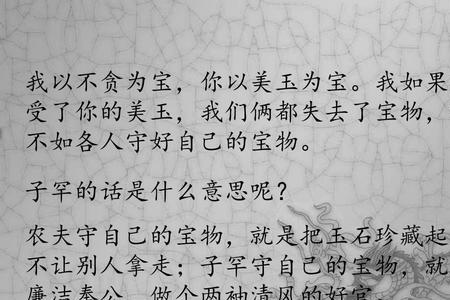 我以不贪为宝，你以美玉为宝。我如果
受了你的美玉，我们俩都失去了宝物，
不如各人守好自己的宝物。
子罕的话是什么意思呢？
农夫守自己的宝物，就是把玉石珍藏起
不让别人拿走；子罕守自己的宝物，就
廉洁奉公，做个两袖清风的好官